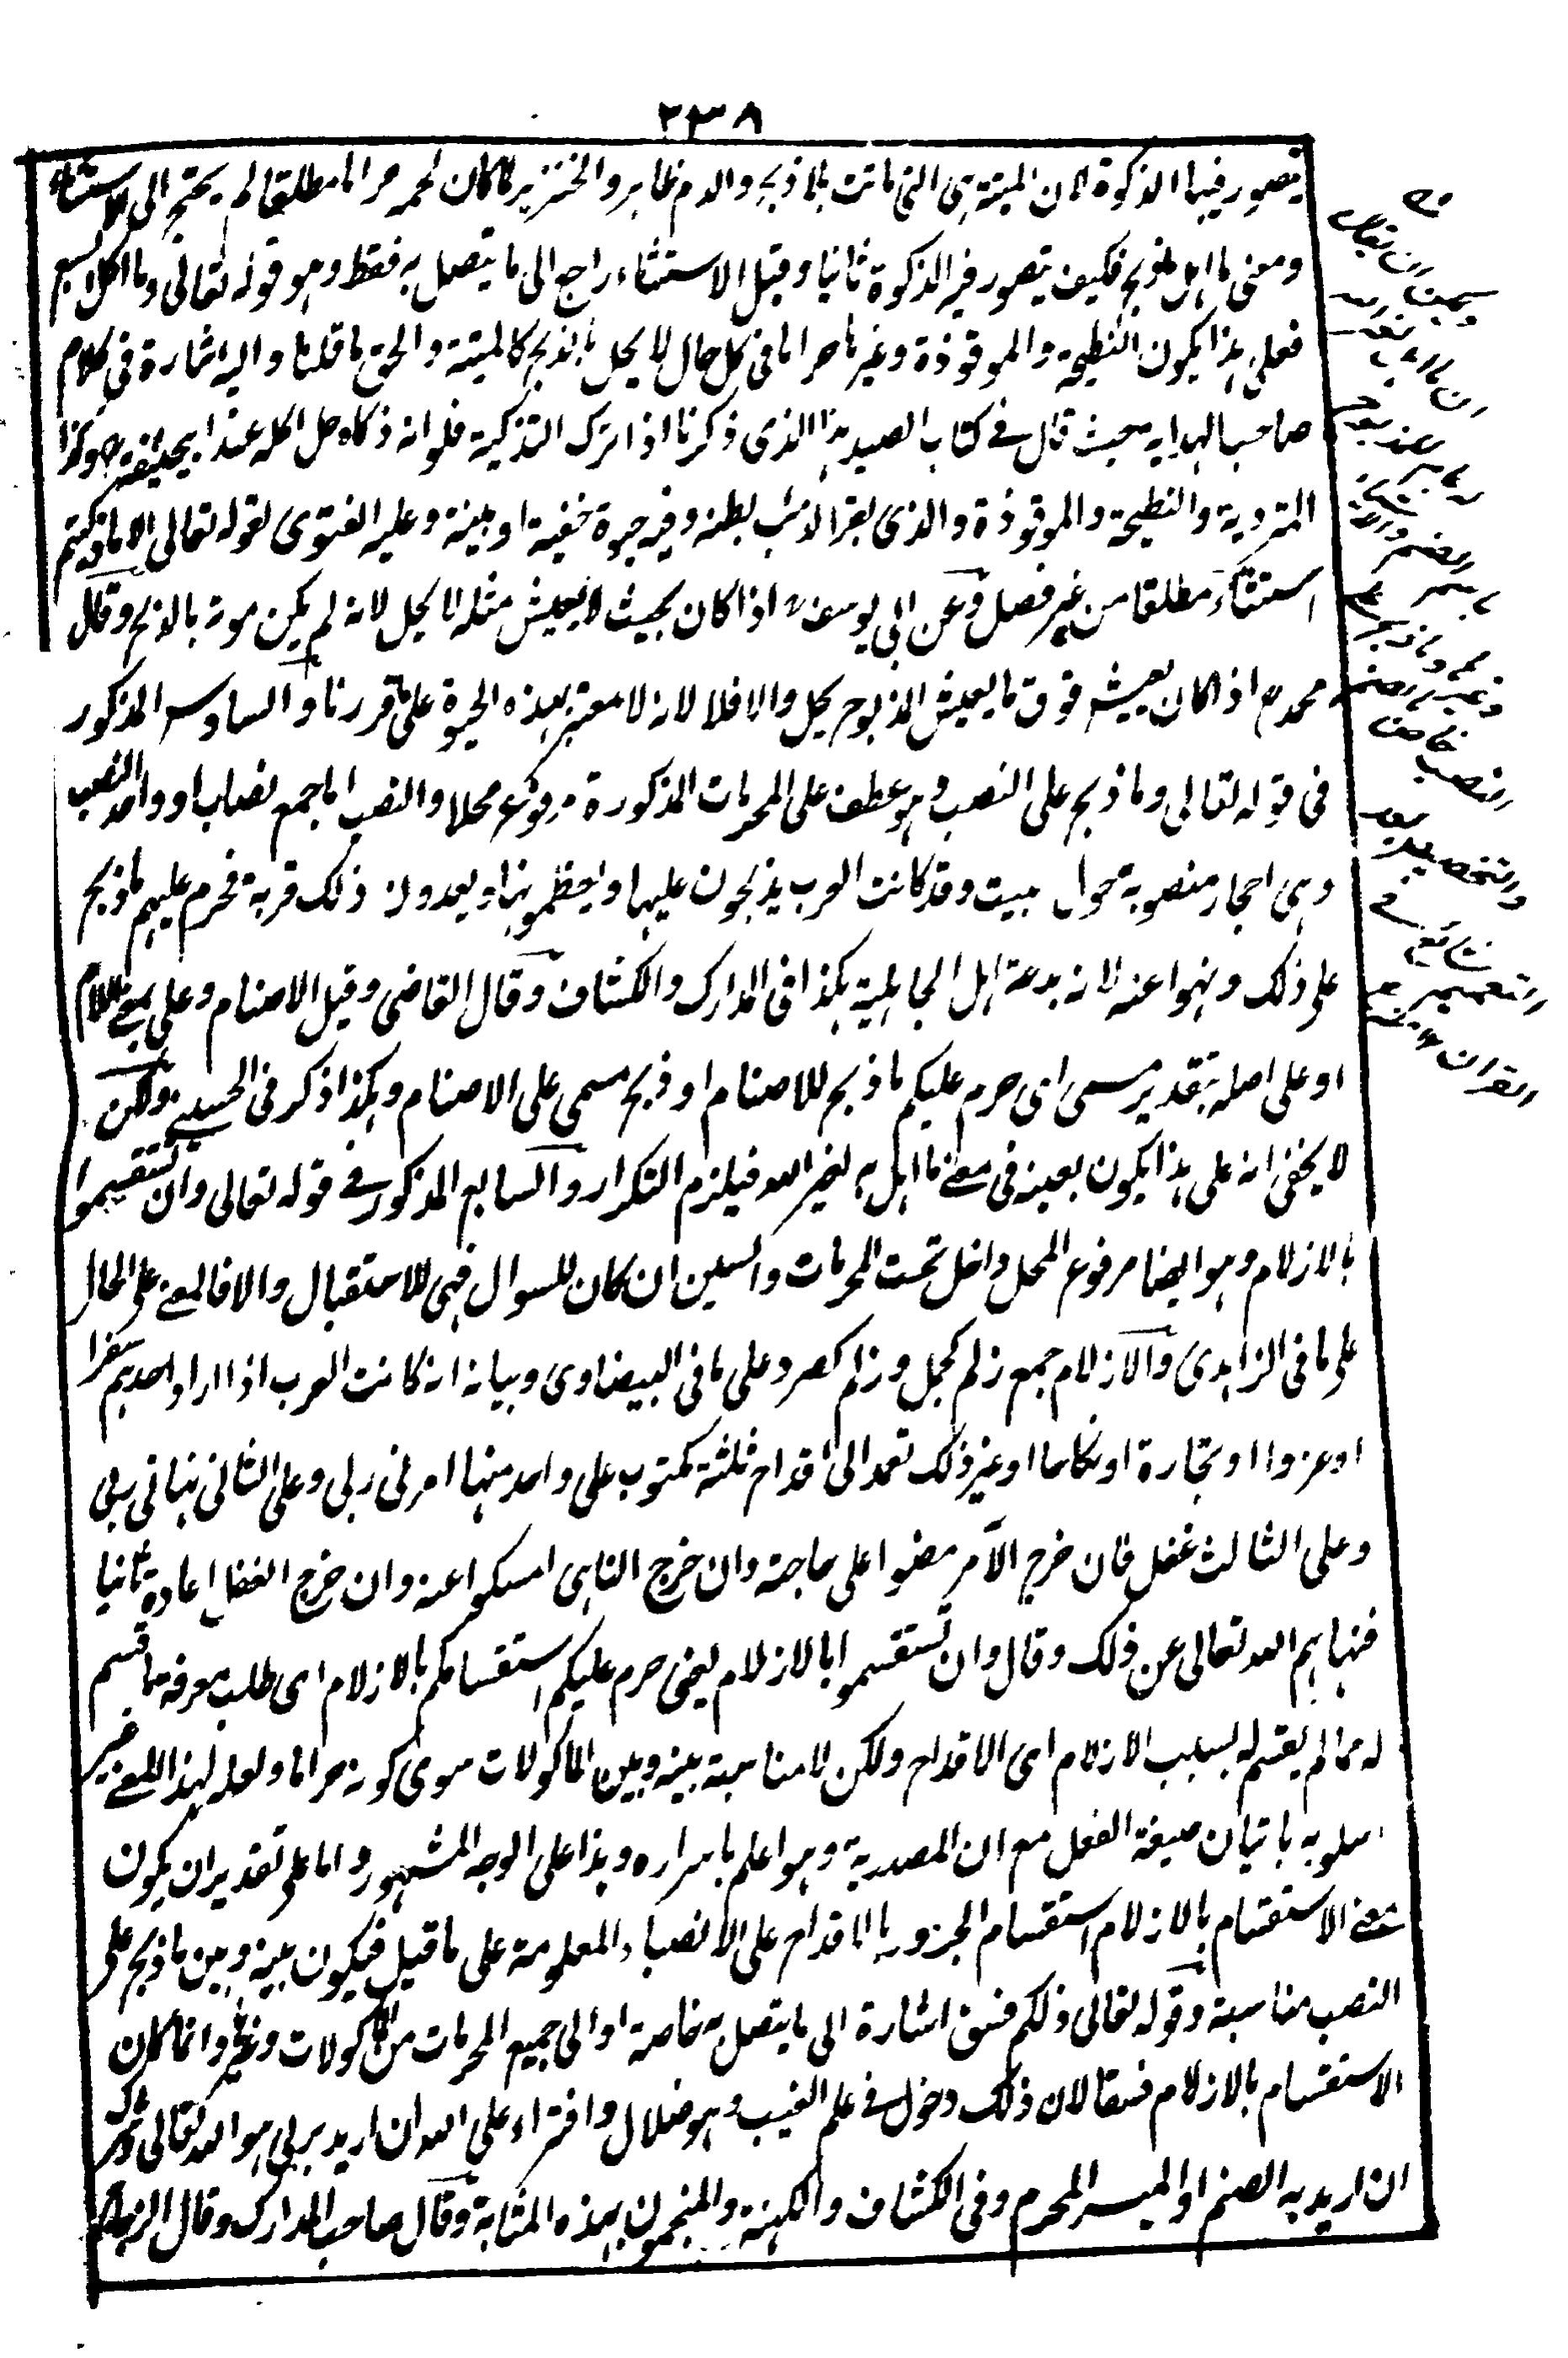 ٢٣٨
يتصور فيها الذكوة لان الميتة هى التى ماتت بلا ذبح والدم ظاهر والخنزير لما كان لحمه حراما مطلقا لم يحتج الى الاستثناء
ومعنى ما اهل ما ذبح فكيف يتصور فيه الذكوة ثانيا وقيل الاستثناء راجع الى ما يتصل به فقط وهو قوله تعالى وما اكل السبع
فعلى هذا يكون النطيحة والموقوذة وغيرها حراما فى كل حال لا يحل بالذبح كالميتة والحق ما قلنا واليه اشارة فى كلام
صاحب الهداية حيث قال فى كتاب الصيد هذا الذى ذكرنا اذا ترك التذكية فلو انه ذكاه حل اكله عند ابيحنيفة رح وكذا
المتردية والنطيحة والموقوذة والذى بقر الذئب بطنه وفيه حيوة خفية او بينة وعليه الفتوى لقوله تعالى الا ما ذكيتم
استثناء مطلقا من غير فصل وعن ابى يوسف رح اذا كان بحيث لا يعيش مثله لا يحل لانه لم يكن موته بالذبح وقال
محمد رح اذا كان يعيش فوق ما يعيش المذبوح يحل والا فلا لانه لا معتبر بهذه الحيوة على ما قررنا والسادس المذكور
فى قوله تعالى وما ذبح على النصب وهو عطف على المحرمات المذكورة مرفوع محلا والنصب اما جمع نصاب او واحد النصب
وهى احجار منصوبة حول بيت وقد كانت العرب يذبحون عليها ويعظمونها ويعدون ذلك قربة فحرم عليهم ما ذبح
على ذلك ونهوا عنه لانه بدعة اهل الجاهلية هكذا فى المدارك والكشاف وقال القاضى وقيل الاصنام وعلى بمعنى اللام
او على اصله بتقدير مسمى اى حرم عليكم ما ذبح للاصنام او ذبح مسمى على الاصنام وهكذا ذكر فى الحسينى ولكن
لا يخفى انه على هذا يكون بعينه فى معنى ما اهل به لغير الله فيلزم التكرار والسابع المذكور فى قوله تعالى وان تستقسموا
بالازلام وهو ايضا مرفوع المحل داخل تحت المحرمات والسين ان كان للسوال فهى للاستقبال والا فالمعنى على الحال
على ما فى الزاهدى والازلام جمع زلم كجمل وزلم كصرد على ما فى البيضاوى وبيانه انه كانت العرب اذا اراد احدهم سفرا
او غزوا او تجارة او نكاحا او غير ذلك تعمد الى اقداح ثلثة مكتوب على واحد منها امرنى ربى وعلى الثانى نهانى ربى
وعلى الثالث غفل فان خرج الآمر مضوا على حاجته وان خرج الناهى امسكوا عنه وان خرج الغفل اعادوه ثانيا
فنهاهم الله تعالى عن ذلك وقال وان تستقسموا بالازلام يعنى حرم عليكم استقسامكم بالازلام اى طلب معرفة ما قسم
له مما لم يقسم له بسبب الازلام اى الاقداح ولكن لا مناسبة بينه وبين الماكولات سوى كونه حراما ولعله لهذا المعنى غير
اسلوبه باتيان صيغة الفعل مع ان المصدرية وهو اعلم باسراره وهذا على الوجه المشهور واما على تقدير ان يكون
معنى الاستقسام بالازلام استقسام الجزور بالاقداح على الانصباء المعلومة على ما قيل فيكون بينه وبين ما ذبح على
النصب مناسبة وقوله تعالى ذلكم فسق اشارة الى ما يتصل به خاصة او الى جميع المحرمات من الماكولات وغيرها وانما كان
الاستقسام بالازلام فسقا لان ذلك دخول فى علم الغيب وهو ضلال وافتراء على الله ان اريد بربى هو الله تعالى وشرك
ان اريد به الصنم او الميسر المحرم وفى الكشاف والكهنة والمنجمون بهذه المثابة وقال صاحب المدارك وقال الزجاج